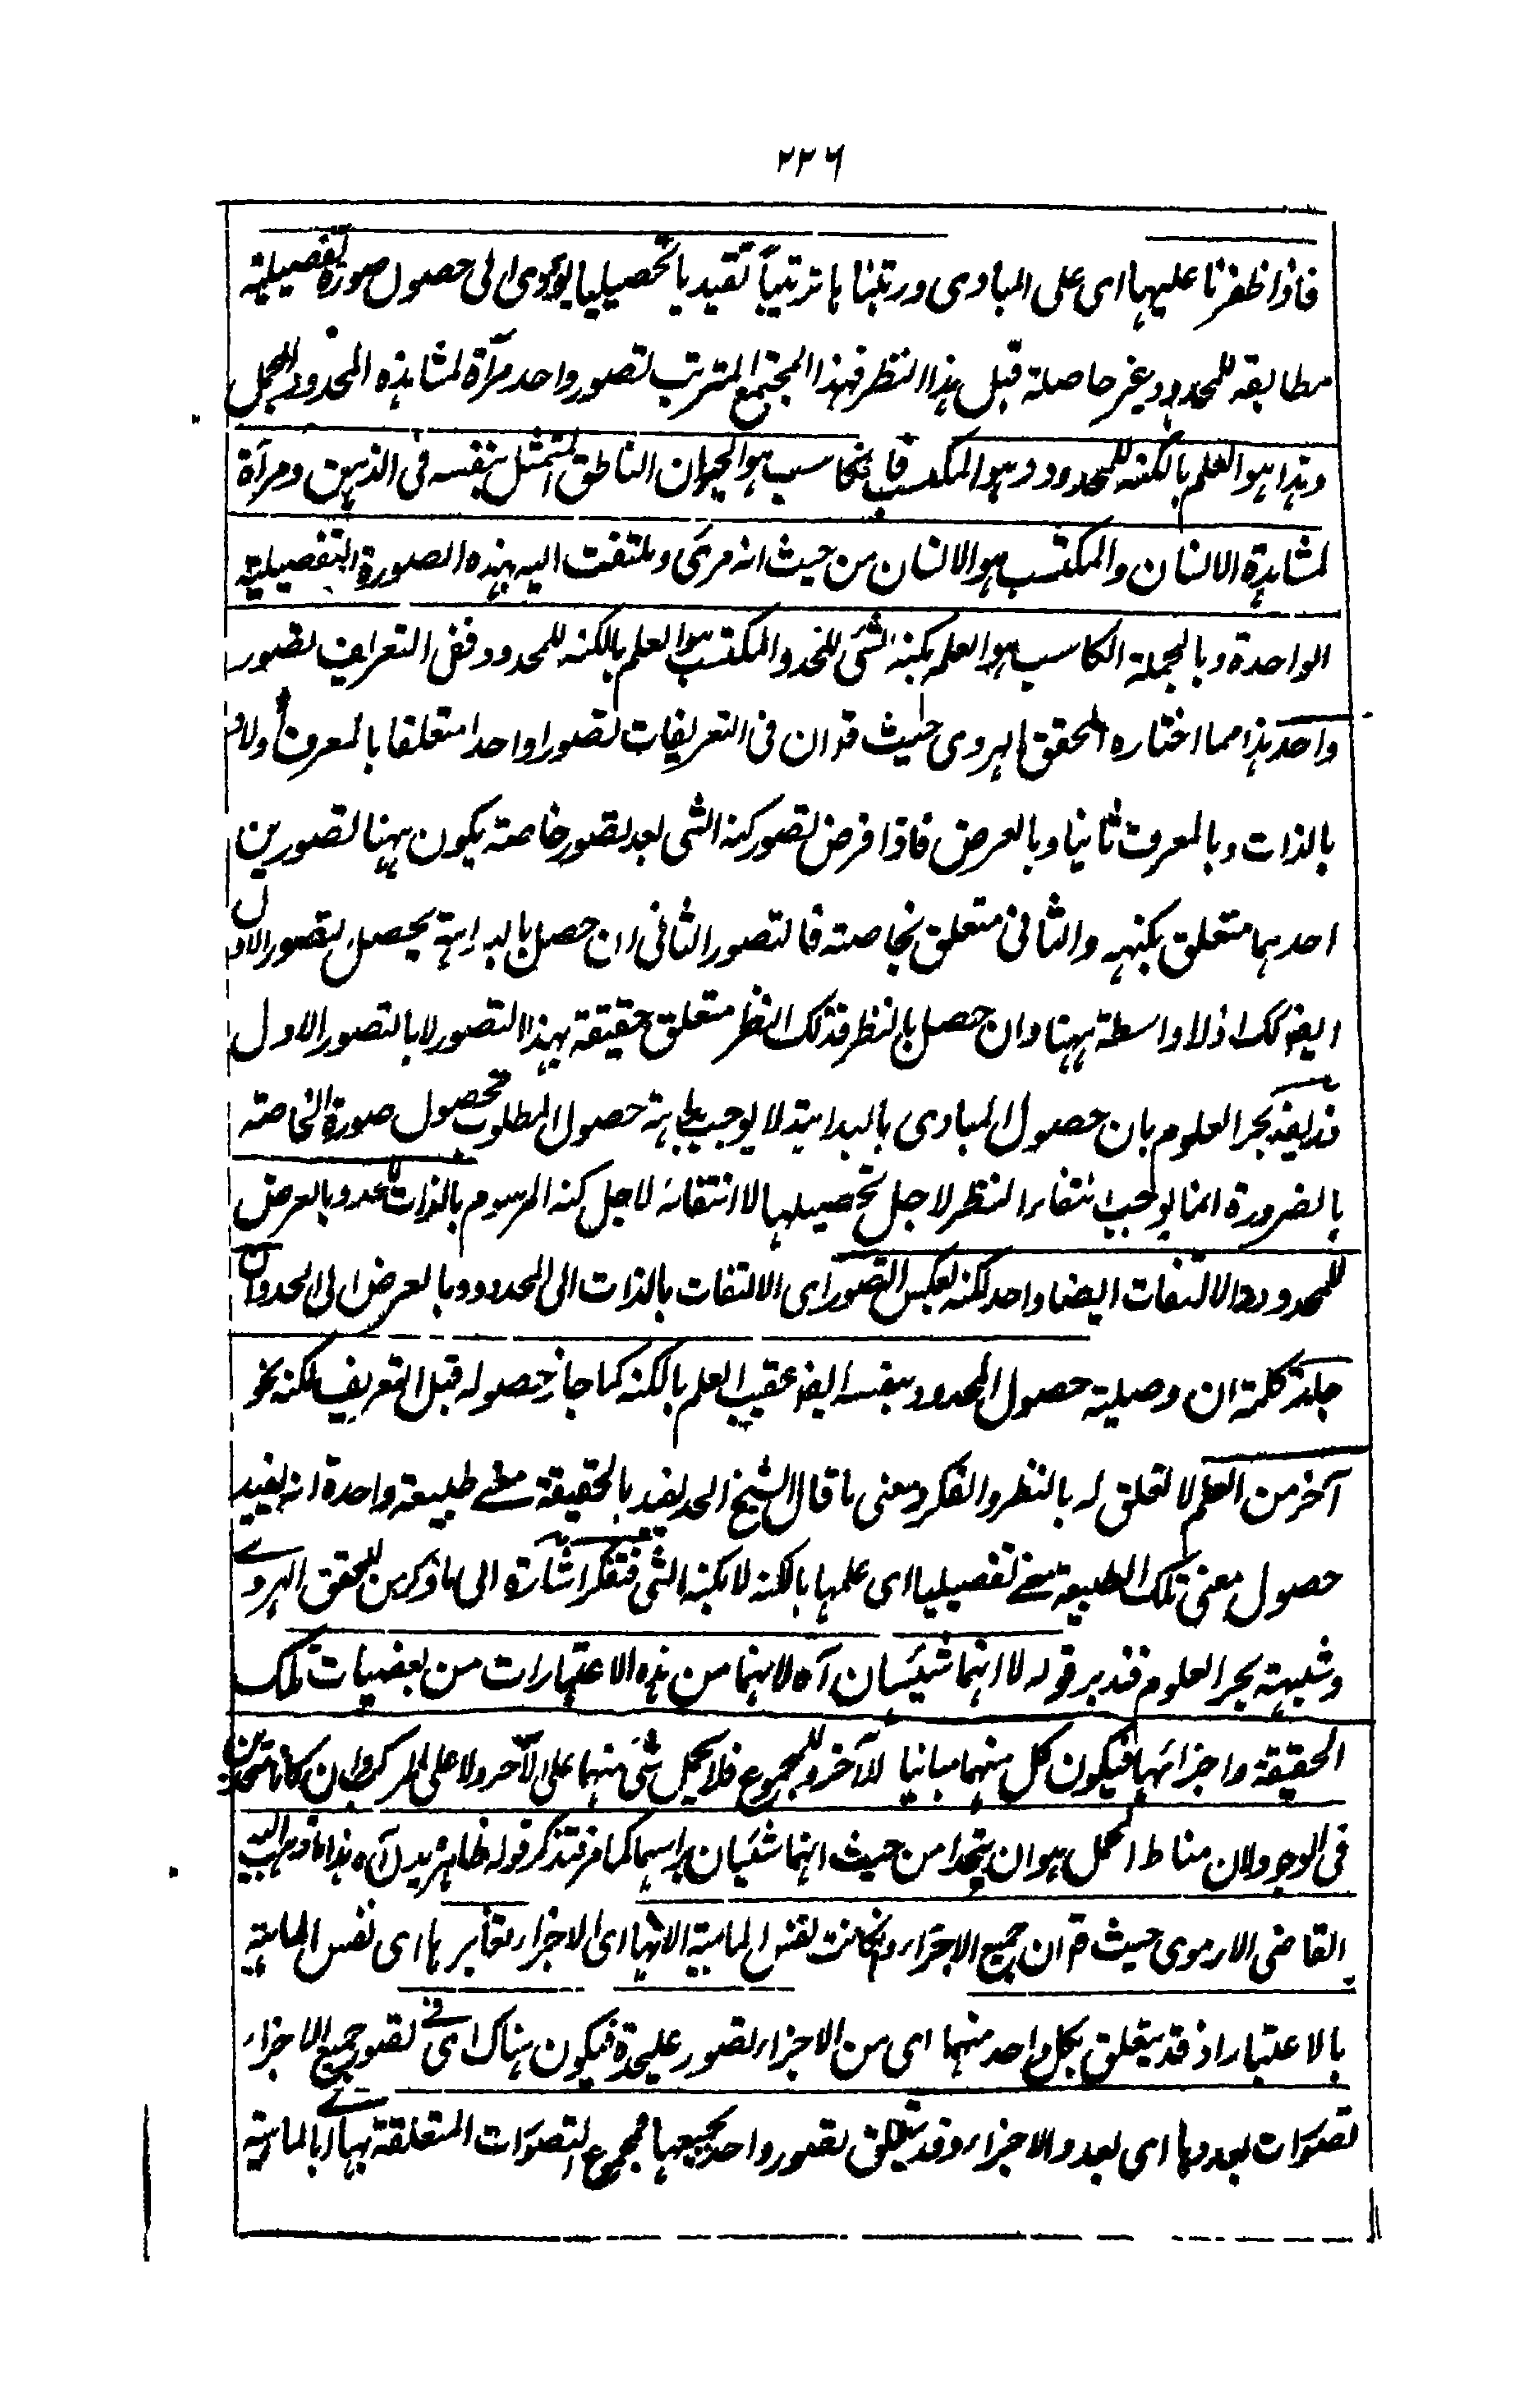 ٢٢٦
فاذا ظفرنا عليها اى على المبادى ورتبناها ترتيباً تقيديا تحصيليا يؤدى الى حصول صورة تفصيلية
مطابقة للمحدود غير حاصلة قبل هذا النظر فهذا المجتمع المترتب تصور واحد مرآة لمشاهدة المحدود المجمل
وهذا هو العلم بالكنه للمحدود وهو المكتسب فالكاسب هو الحيوان الناطق المتمثل بنفسه فى الذهن ومرآة
لمشاهدة الانسان والمكتسب هو الانسان من حيث انه مرئى وملتفت اليه بهذه الصورة التفصيلية
الواحدة وبالجملة الكاسب هو العلم بكنه الشئ للحد والمكتسب هو العلم بالكنه للمحدود ففى التعريف تصور
واحد هذا مما اختاره المحقق الهروى حيث قد ان فى التعريفات تصورا واحدا متعلقا بالمعرف اولا و
بالذات وبالمعرف ثانيا وبالعرض فاذا فرض تصور كنه الشى بعد تصور خاصته يكون ههنا تصورين
احدهما متعلق بكنهه والثانى متعلق بخاصته فالتصور الثانى ان حصل بالبداهة يحصل بتصور الاول
ايضا كك اذ لا واسطة ههنا وان حصل بالنظر فذلك النظر متعلق حقيقة بهذا التصور لا بالتصور الاول
بحر العلوم بان حصول المبادى بالبداهة لا يوجب بداهة حصول المطلوب فحصول صورة الخاصة
بالضرورة انما يوجب انتفاء النظر لاجل تحصيلها لا انتفائه لاجل كنه المرسوم بالذات للحد وبالعرض
للمحدود والالتفات ايضا واحد لكنه بعكس التصور اى الالتفات بالذات الى المحدود وبالعرض الى الحد وان
جاز كلمة ان وصلية حصول المحدود بنفسه ايضا عقيب العلم بالكنه كما جاز حصوله قبل التعريف لكنه نحو
آخر من العلم لا تعلق له بالنظر والفكر ومعنى ما قال الشيخ الحد يفيد بالحقيقة معنى طبيعة واحدة انه يفيد
حصول معنى تلك الطبيعة معنى تفصيليا اى علمها بالكنه لا بكنه الشئ فتفكر اشارة الى ما ذكر من المحقق الهروى
وشبهة بحر العلوم فتدبر قوله لا انهما شيئان آه لانهما من هذه الاعتبارات من بعضيات تلك
الحقيقة واجزائها فيكون كل منهما مبانيا للآخر وللمجموع فلا يحمل شئ منهما على الآخر ولا على المركب وان كانا متحدين
فى الوجود لان مناط الحمل هو ان يتحدا من حيث انهما شئيان براسهما كما مر فتذكر قوله ظاهر يدل آه هذا ما ذهب اليه
القاضى الارموى حيث قد ان جميع الاجزاء وان كانت نفس الماهية الا انها اى الاجزاء تغايرها اى نفس الماهية
بالاعتبار اذ قد يتعلق بكل واحد منهما اى من الاجزاء تصور عليحدة فيكون هناك اى فى تصور جميع الاجزاء
تصورات بعددها اى بعدد الاجزاء وقد يتعلق تصور واحد بجميعها فمجموع التصورات المتعلقة بها اى بالماهية